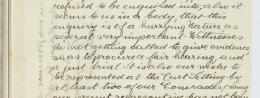 refused to be enquired into, also it
seems to us in a body, that this
enquiry is of a hurrying Nature as
several very important Witnesses
do not getting called to give evidence
so as to procure a fair hearing and
a just trial. it is also our wish to
be represented at the Court Sitting by
at least two of our Comrades,
our representative has not